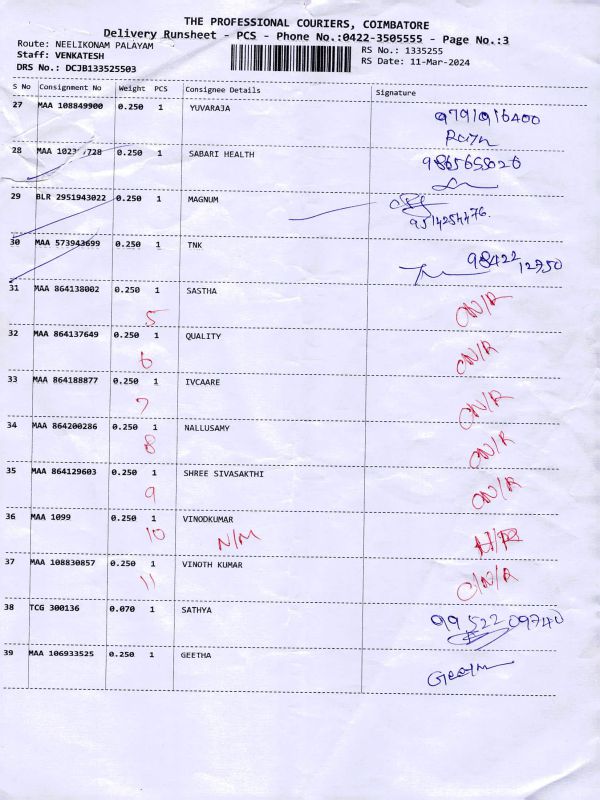 THE PROFESSIONAL COURIERS, COIMBATORE
Delivery Runsheet - PCS - Phone No.:0422-3505555 - Page No.:3
Route: NEELIKONAM PALAYAM
RS No.: 1335255
Staff: VENKATESH
RS Date: 11-Mar-2024
DRS No.: DCJB133525503
S No Consignment No Weight PCS Consignee Details Signature
27 MAA 108849900 0.250 1 YUVARAJA
28 MAA 728 0.250 1 SABARI HEALTH
29 BLR 2951943022 0.250 1 MAGNUM
30 MAA 573943699 0.250 1 TNK 98422 12750
31 MAA 864138002 0.250 1 SASTHA
5 CN/R
32 MAA 864137649 0.250 1 QUALITY
6 CN/R
33 MAA 864188877 0.250 1 IVCAARE
7 CN/R
34 MAA 864200286 0.250 1 NALLUSAMY
8 CN/R
35 MAA 864129603 0.250 1 SHREE SIVASAKTHI
9 CN/R
36 MAA 1099 0.250 1 VINODKUMAR
10 N/M
37 MAA 108830857 0.250 1 VINOTH KUMAR
11 C/N/R
38 TCG 300136 0.070 1 SATHYA 99522 09740
39 MAA 106933525 0.250 1 GEETHA